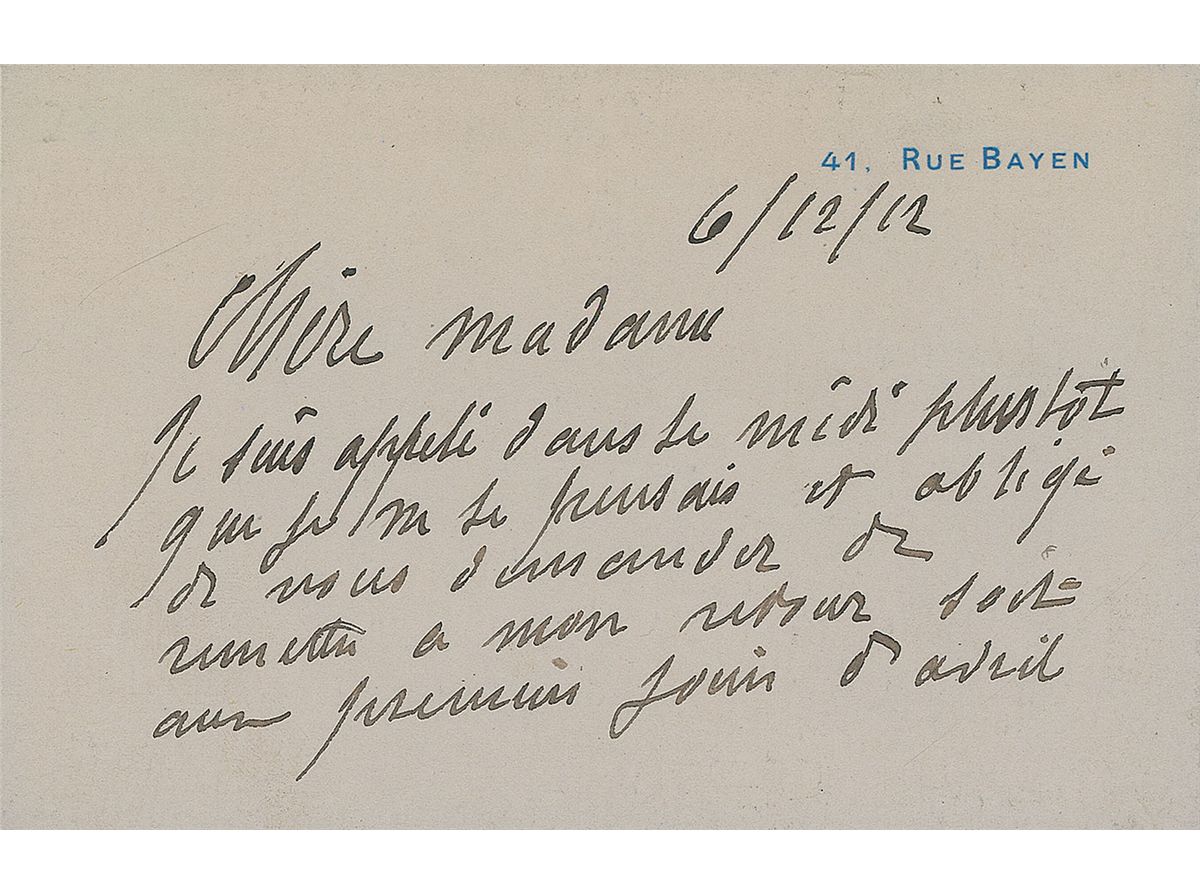 41, RUE BAYEN
6/12/12
Chère madame
Je suis appelé dans le midi plustôt
que je ne le pensais et obligé
de vous demander de
remettre a mon retour soit
aux premiers jours d'avril